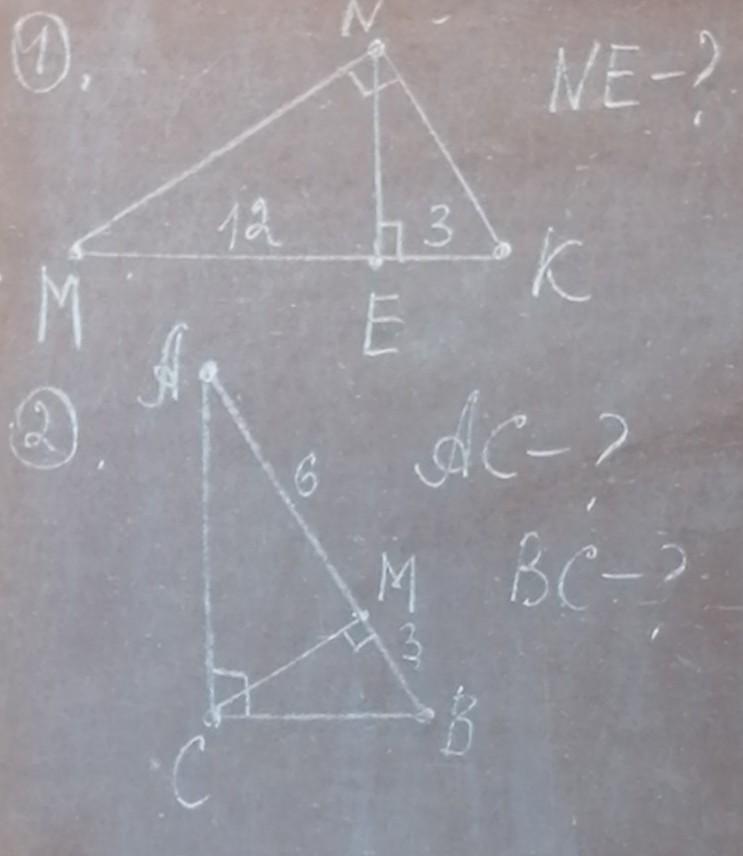 ①.
N
NE-?
12
3
M
E
K
②.
A
6
AC-?
M
BC-?
3
C
B